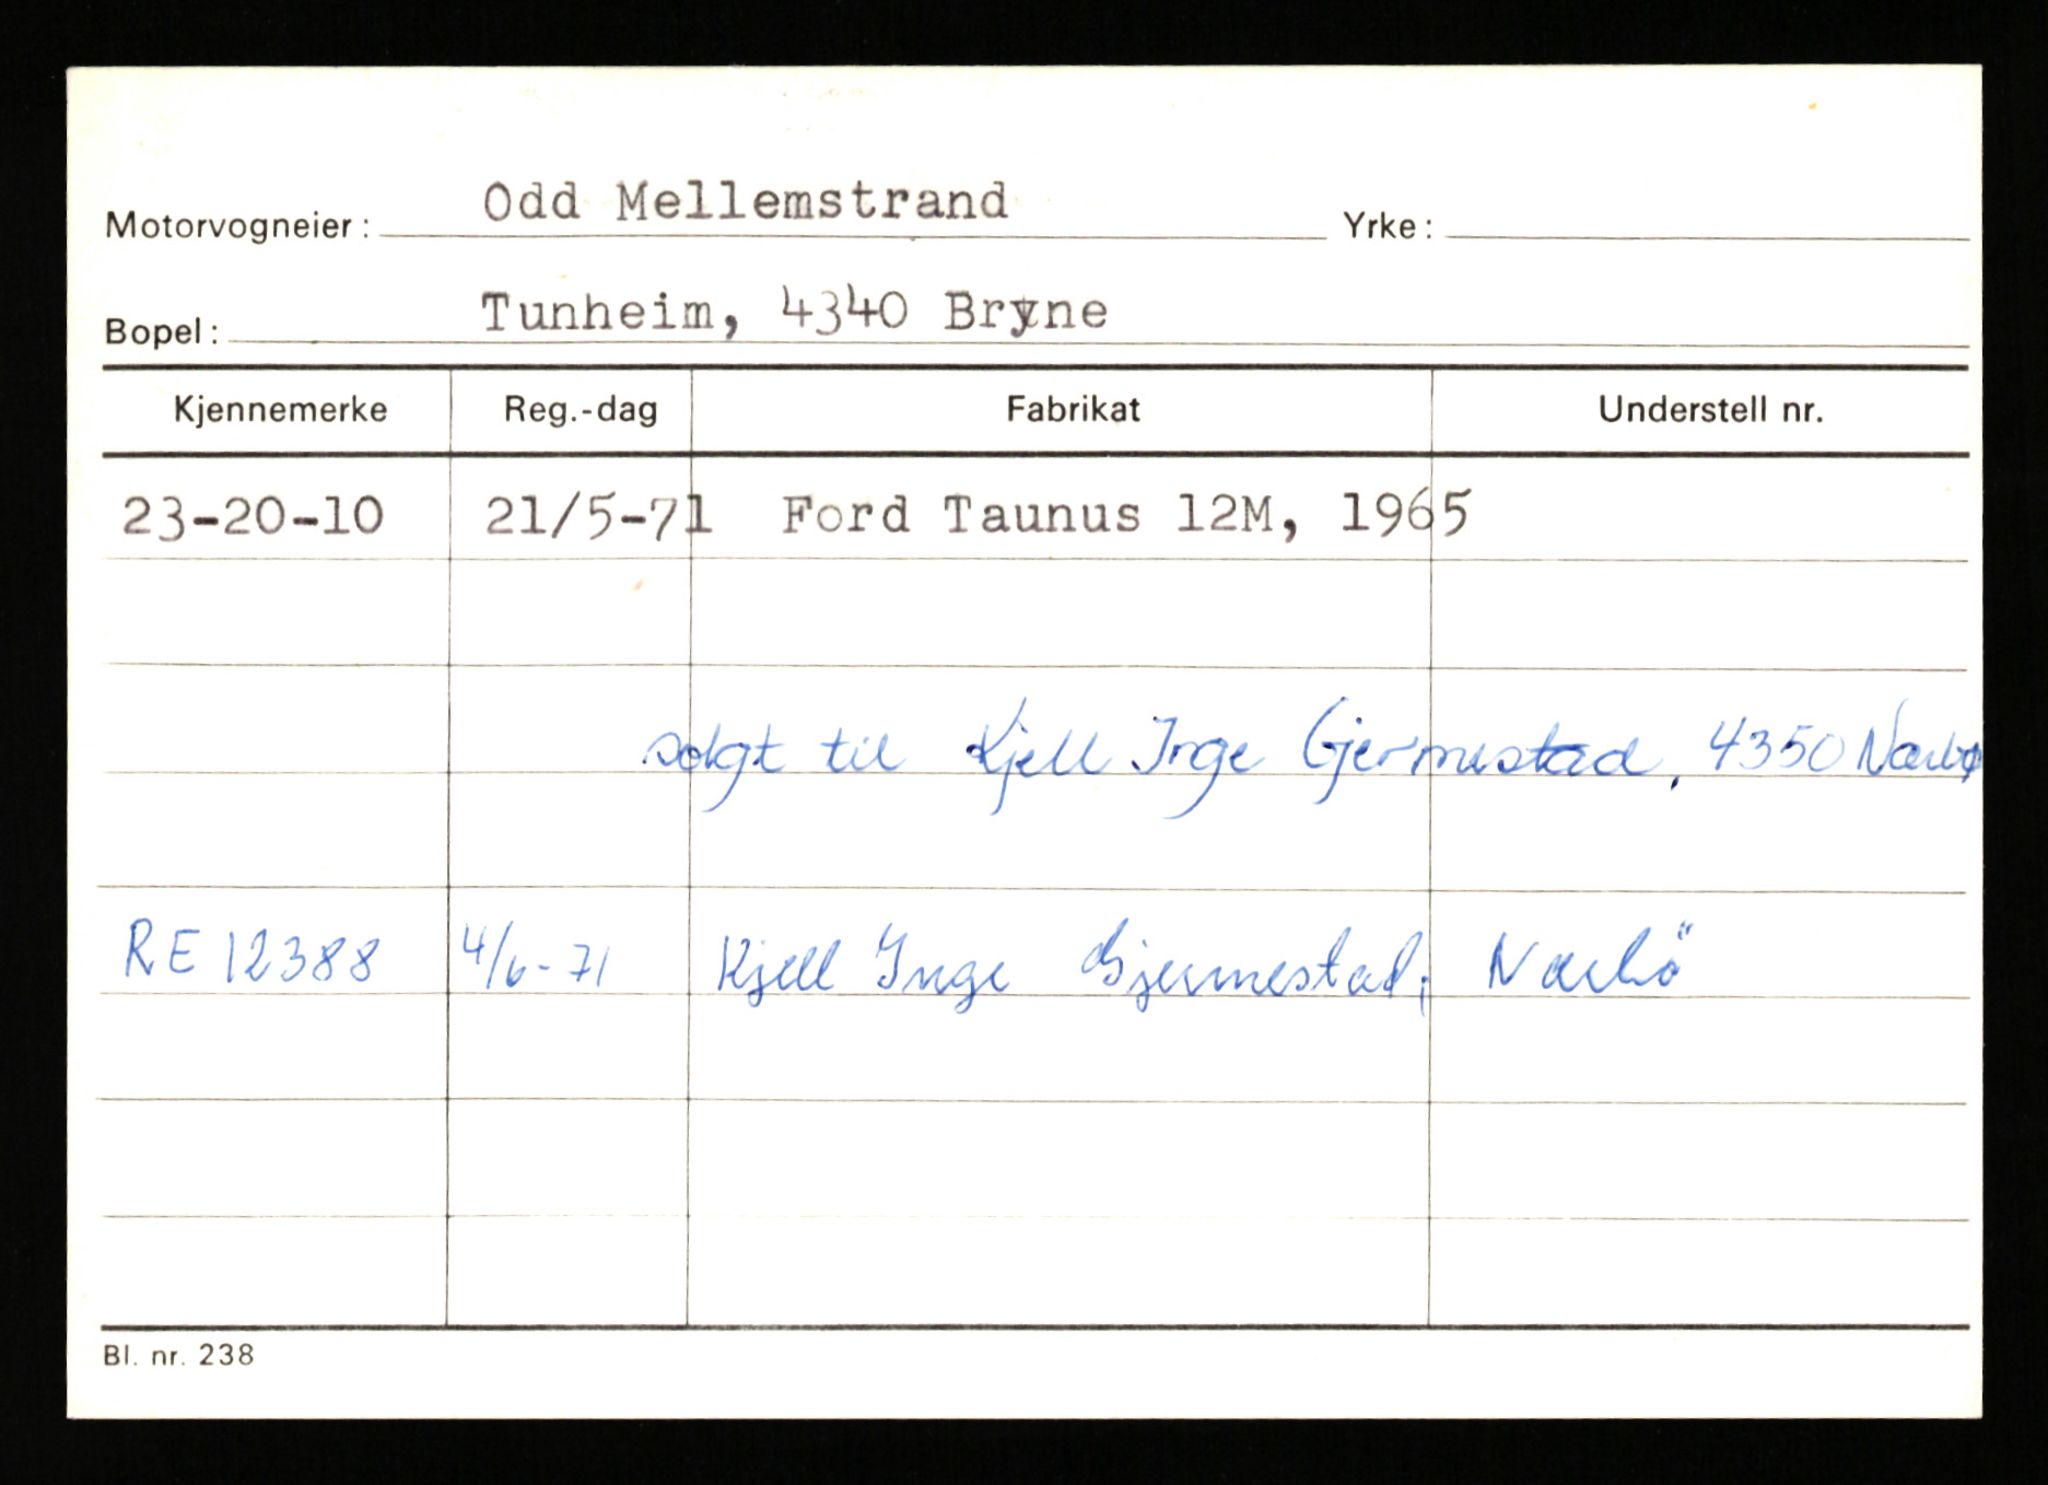 Motorvogneier: Odd Mellemstrand Yrke:
Bopel: Tunheim, 4340 Bryne
Kjennemerke Reg.-dag Fabrikat Understell nr.
23-20-10 21/5-71 Ford Taunus 12M, 1965
solgt til Kjell Inge Gjermestad, 4350 Nærbø
RE 12388 4/6-71 Kjell Inge Gjermestad, Nærbö
Bl. nr. 238